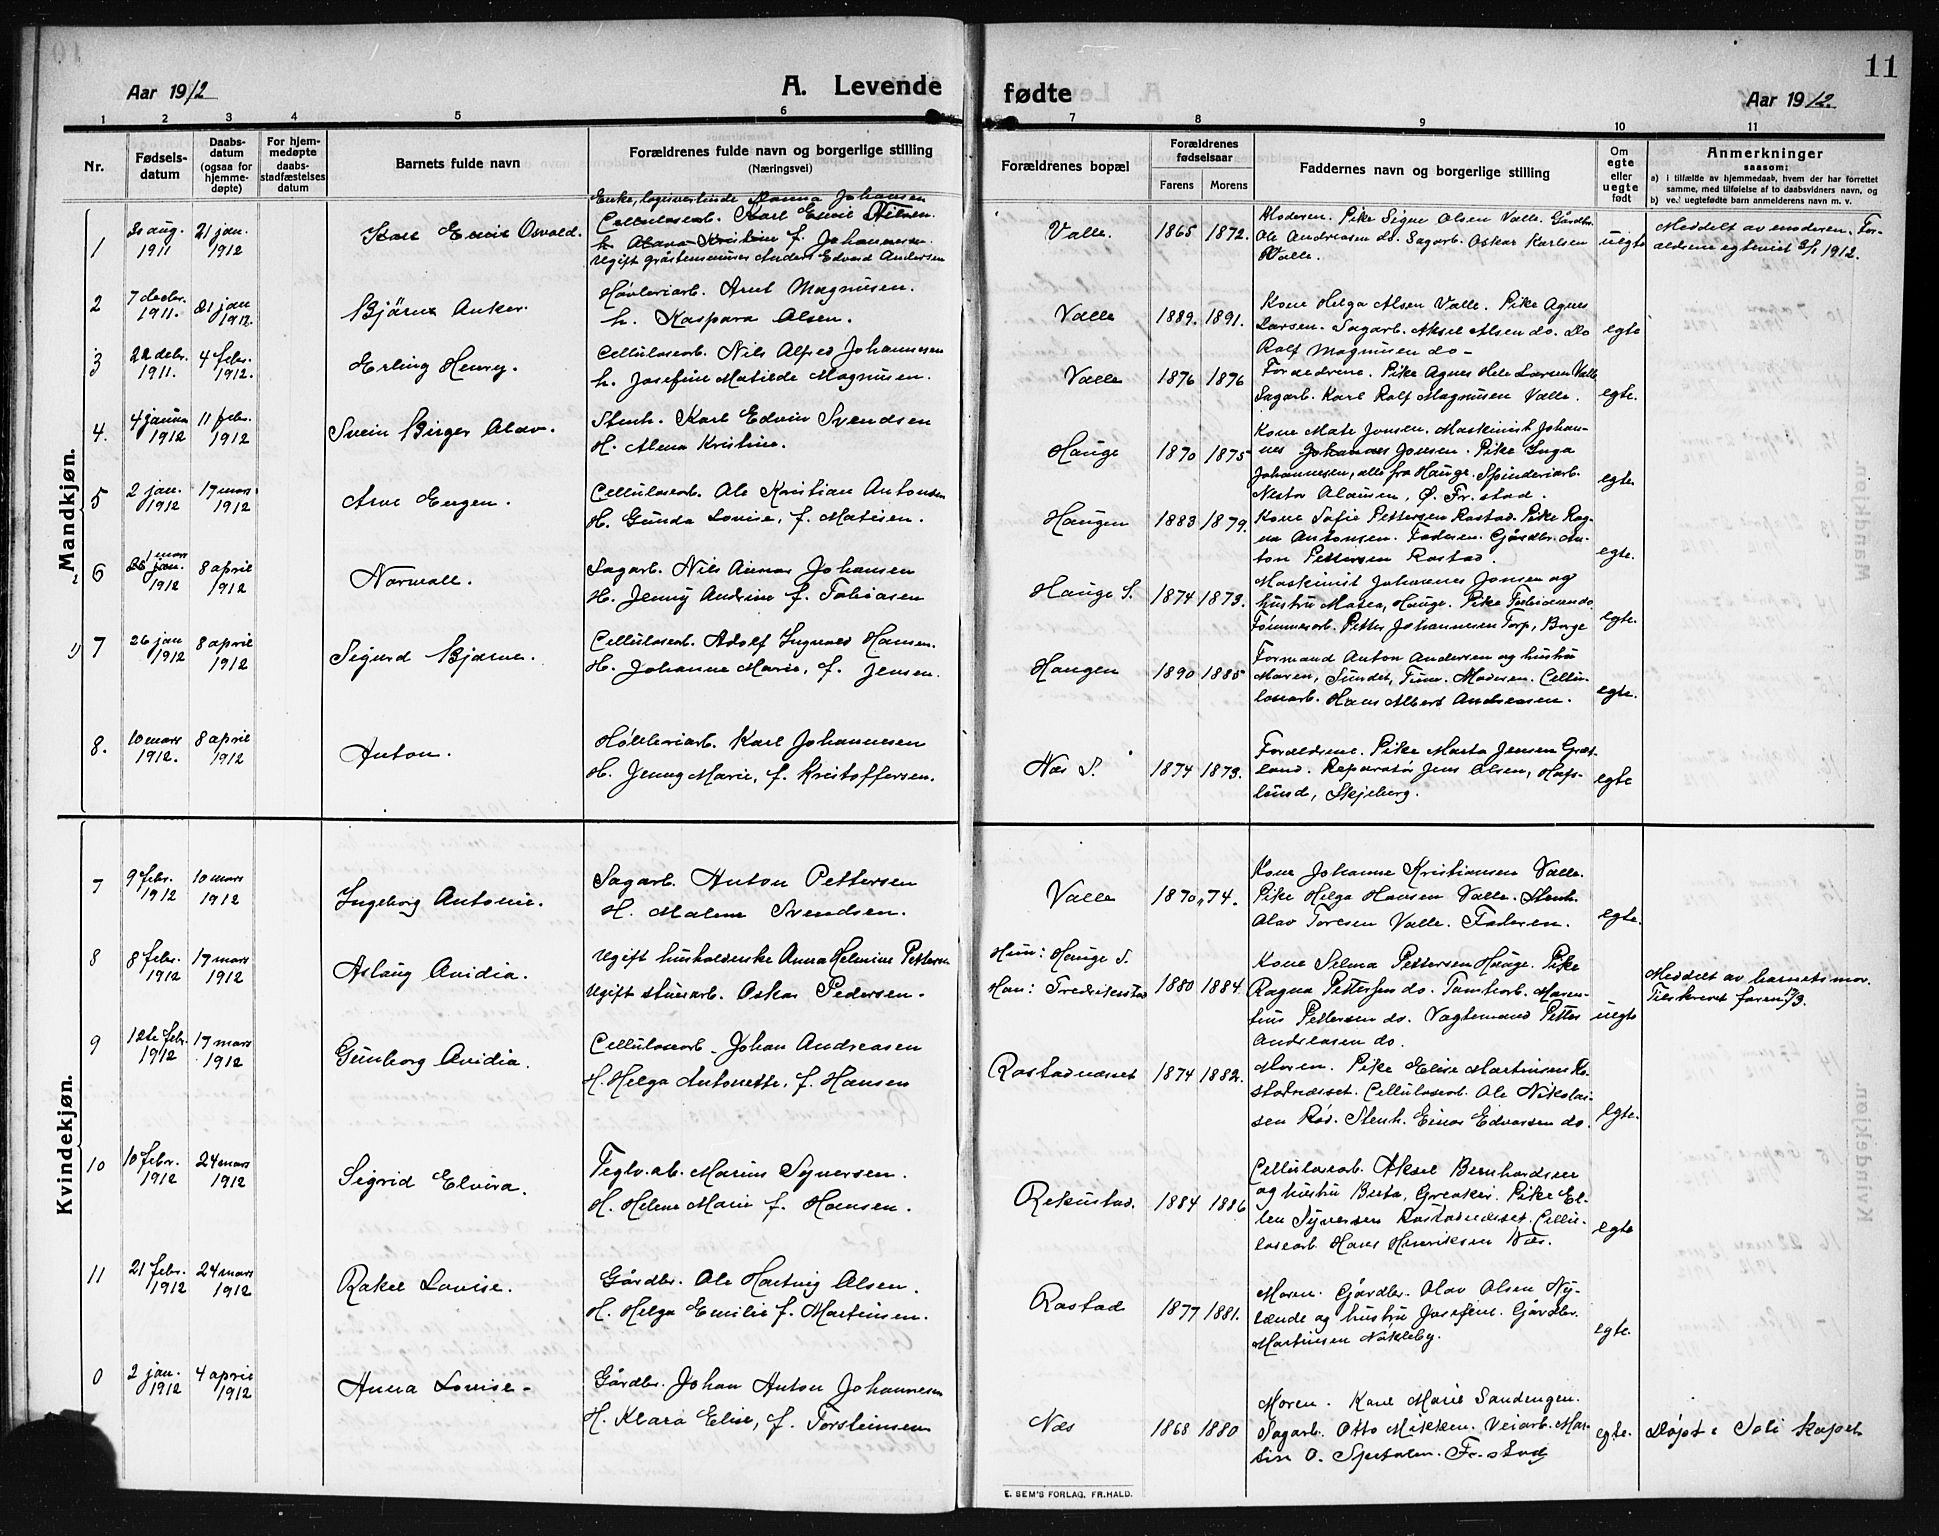 Aar 1912
A. Levende
fødte
11
Aar 1912.
1 2 3 4 5 6 7 8 9 10 11
Nr.
Fødsels-
datum
Daabs-
datum
(ogsaa for
hjemme-
døpte)
For hjem-
medøpte
daabs-
stadfæstelses
datum
Barnets fulde navn
Forældrenes fulde navn og borgerlige stilling
(Næringsvei)
Forældrenes bopæl
Forældrenes
fødselsaar
Farens Morens
Faddernes navn og borgerlige stilling
Om
egte
eller
uegte
født
Anmerkninger
saasom:
a) i tilfælde av hjemmedaab, hvem der har forrettet
samme, med tilføielse af to daabsvidners navn, og
b) ved uegtefødte barn anmelderens navn m. v.
Mandkjøn.
1
20 aug.
1911
21 jan.
1912
Karl Osvald.
Enke, Johansen
Cellulosearb. Karl Emil Nilsen.
h. Kristine f. Johannesen.
Ugift Anders Edvard Andersen
Valle.
1865 1872.
Moderen. Pike Signe Olsen Valle. Gårdbr.
Ole Andreasen do. Sagarb. Oskar Karlsen
Valle.
uegte
Meddelt av moderen. For-
ældrene egteviet 1912.
2
7 decbr.
1911.
21 jan
1912.
Bjärne Anker.
Høvleriarb. Arnt Magnusen.
h. Kaspara Olsen.
Valle
1889. 1891.
Kone Helga Olsen Valle. Pike Agnes
Larsen. Sagarb. Aksel Olsen do. Do
Rolf Magnusen do-
egte
3
22 debr.
1911.
4 febr.
1912.
Erling Henry.
Cellulosearb. Nils Alfred Johannesen
h. Josefine Matilde Magnusen.
Valle
1876 1876
Forældrene. Pike Agnes Larsen Valle
Sagarb. Karl Rolf Magnusen Valle.
egte.
4.
4 januar
1912
11 febr.
1912
Svein Birger Olav.
Stenh. Karl Edvin Svendsen
H. Alma Kristine.
Hauge
1870 1875
Kone Mate Jonsen. Maskinist Johan-
nes Johannes Jonsen. Pike Inga
Johannesen, alle fra Hauge. Spinderiarb.
Nestor Olausen, Ø. Fr. stad.
egte.
5
2 jan.
1912
17 mars
1912
Arve Eugen.
Cellulosearb. Ole Kristian Antonsen
H. Gunda Lovise, f. Matisen.
Haugen
1883 1879.
Kone Sofie Pettersen Rostad. Pike Rag-
na Antonsen. Faderen. Gårdbr. An-
ton Pettersen Rostad.
egte.
6
1 mars
1912
8 april
1912
Normall.
Sagarb. Nils Johansen
H. Jenny Andrine f. Tobiasen
Hauge S.
1874 1873.
Maskinist Johannes Jonsen og
hustru Matea, Hauge. Pike
Tømmerarb. Petter Johannesen Torp, Borge
egte.
7
26 jan
1912
8 april
1912
Sigurd Bjarne.
Cellulosearb. Adolf Ingvald Hansen.
H. Johanne Marie, f. Jensen.
Haugen
1890 1885
Formand Anton Andersen og hustru
Maren, Sundet, Tune. Moderen. Cellu-
losearb. Hans Albert Andreasen.
egte.
8.
10 mars
1912.
8 april
1912
Anton.
Høvleriarb. Karl Johannesen
H. Jenny Marie, f. Kristoffersen.
Næs S.
1874 1873.
Forældrene. Pike Marta Jensen Græs-
land. Reparatør Jens Olsen, Hafs-
lund, Skjeberg.
egte
Kvindekjøn.
7
9 febr.
1912
10 mars
1912
Ingeborg Antonie.
Sagarb. Anton Pettersen
H. Malene Svendsen.
Valle
1870, 74.
Kone Johanne Kristiansen Valle.
Pike Helga Hansen Valle. Stenh.
Olav Toresen Valle. Faderen.
egte.
8
8 febr.
1912
17 mars
1912
Aslaug Ovidia.
Ugift husholderske Anna Helmine Pettersen
Ugift stuearb. Oskar Pedersen.
Hun: Hauge S.
Han: Fredrikstad
1880 1884.
Kone Selma Pettersen Hauge. Pike
Ragna Pettersen do. Tomtearb. Maren-
tius Pettersen do. Vagtmand Petter
Andreasen do.
uegte
Meddelt av barnets mor.
Tilskrevet faren 17/3.
9
12te febr.
1912
17 mars
1912
Gunborg Ovidia.
Cellulosearb. Johan Andreasen
H. Helga Antonette, f. Hansen
Rostadnæsset
1874 1882.
Moren. Pike Elise Martinsen Ro-
stadnæsset. Cellulosearb. Ole Nikolai-
sen Rød. Stenh. Einar Edvarsen do.
egte.
10
10 febr.
1912
24 mars
1912
Sigrid Elvira.
Teglv.ab. Marius Syversen.
H. Helene Marie f. Hansen.
Rekustad.
1884 1886
Cellulosearb. Aksel Bernhardsen
og hustru Berta, Greaker. Pike El-
len Syversen Rostadnæsset. Cellu-
losearb. Hans Henriksen Næs.
egte
11
21 febr.
1912
24 mars
1912
Rakel Lovise.
Gårdbr. Ole Hartvig Olsen.
H. Helga Emilie f. Martinsen.
Rostad
1877 1881.
Moren. Gårdbr. Olav Olsen Ny-
lænde og hustru Josefine. Gårdbr.
Martinsen Nökleby.
egte.
0
2 jan.
1912
4 april
1912
Anna Lovise-
Gårdbr. Johan Anton Johannesen
H. Klara Elise, f. Torsteinsen
Næs
1868 1880
Moren. Kone Marie Sandengen.
Sagarb. Otto Mikken. Veiarb. Mar-
tin O. Spetalen. Fr.stad
egte.
Döpt i Soli kapel
E. SEM'S FORLAG, FR.HALD.